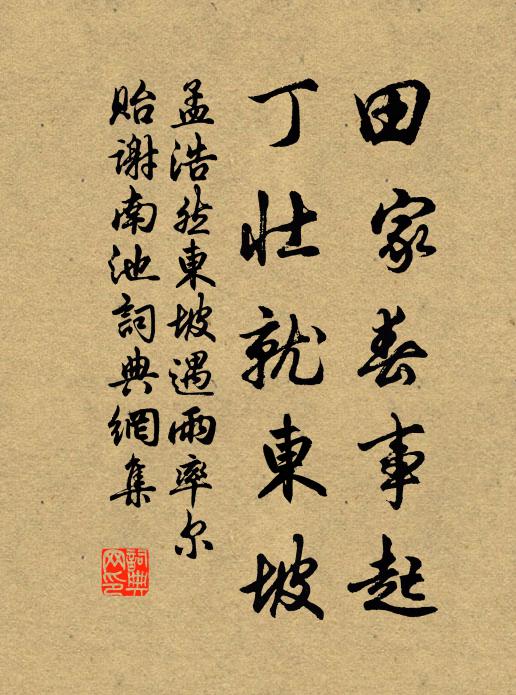 田家春事起
丁壮就東坡
孟浩然東坡遇雨率尔
貽謝南池詞典網集
詞典网印